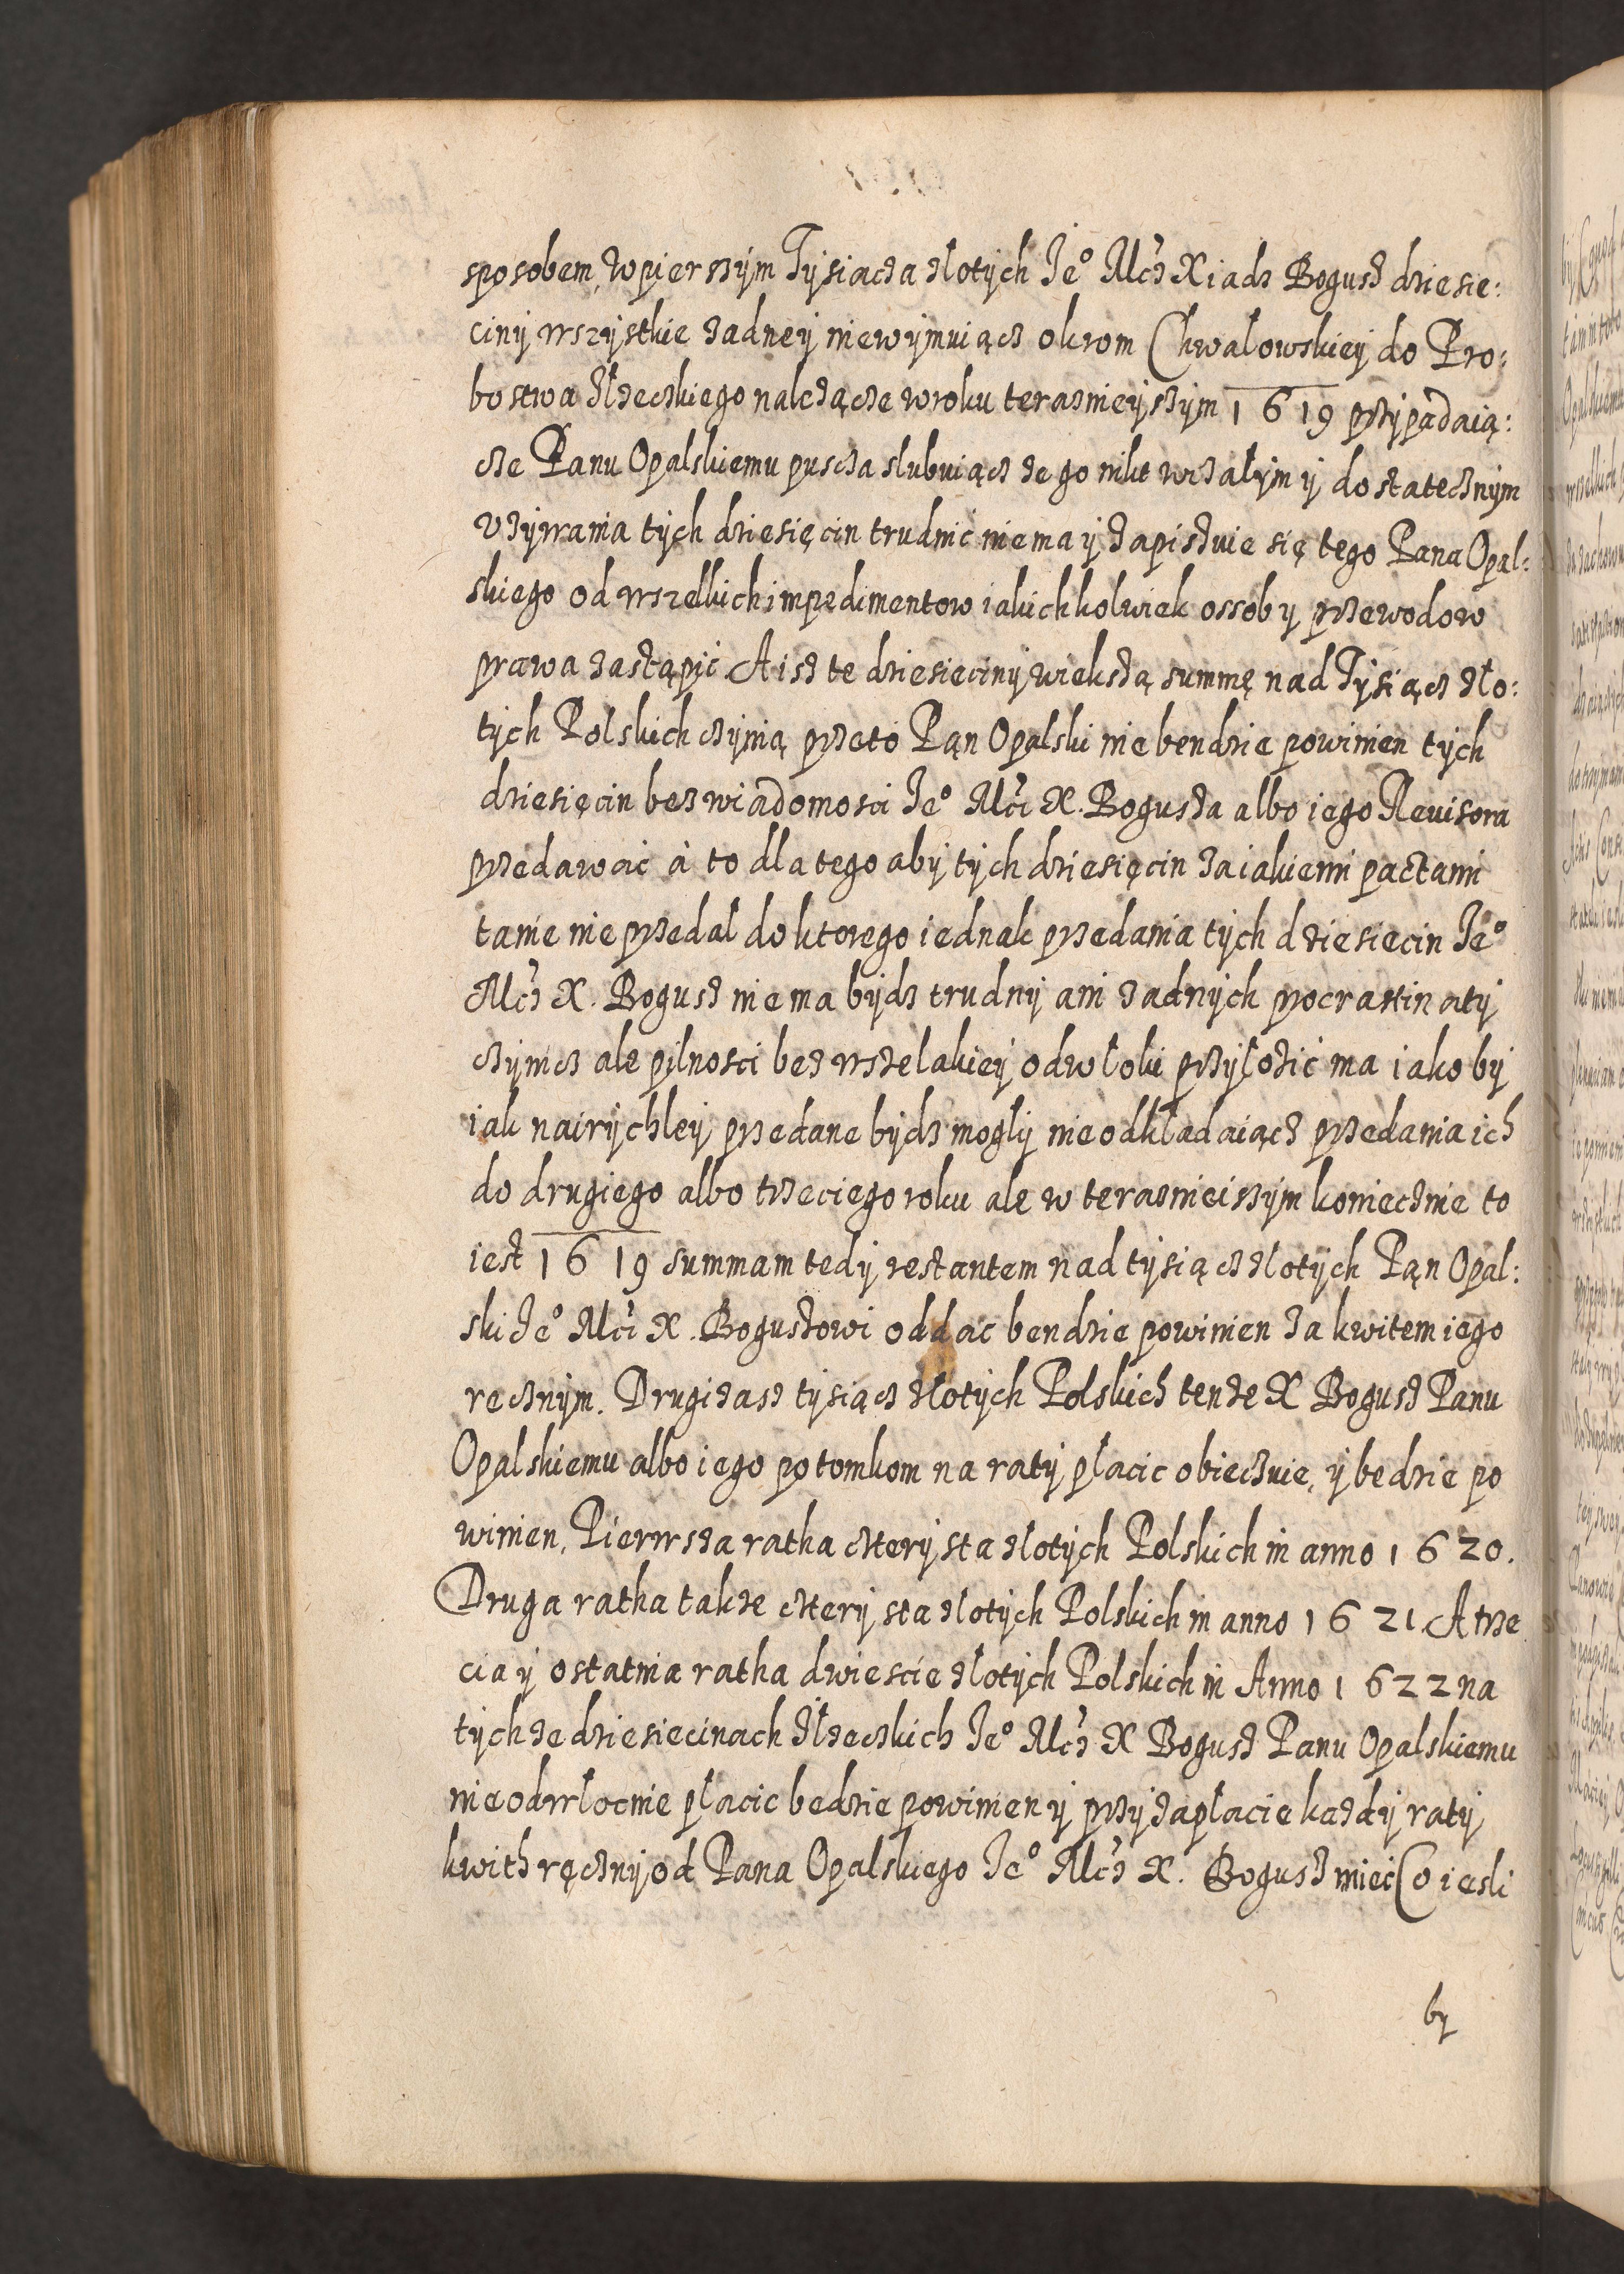 sposobem, w pierszym Tysiacza złotych Je° Mcz Xiadz Bogusz dziesie:
ciny wszystkie zadney niewymuiącz okrom Chwalowskiey do Pro:
bostwa Iłzeczkiego nalezącze w roku teraznieyszym 1619 przypadaią:
cze Panu Opalskiemu puscza slubuiącz ze go nikt w czałym y dostatecznym
vzywania tych dziesięcin trudnic niema y zapiszuie się tego Pana Opal:
skiego od wszelkich impedimentow iakichkolwiek ossob y przewodow
prawa zastąpić A isz te dziesieciny wiekszą summę nad Tysiącz zło:
tych Polskich czynią przeto Pąn Opalski nie bendzie powinien tych
dziesięcin bez wiadomosci Je° Mci X. Bogusza albo iego Revisora
przedawać à to dla tego aby tych dziesięcin za iakiemi pactami
tanie nie przedal do ktorego iednak przedania tych dziesiecin Je°
Mcz X. Bogusz niema bydz trudny ani zadnych procrastinaty
czynicz ale pilnosci bez wszelakiey odwłoki przyłozić ma iakoby
iak nairychley przedane bydz mogly nieodkładaiącz przedania ich
do drugiego albo trzeciego roku ale w teraznieiszym koniecznie to
iest 1619 summam tedy restantem nad tysiącz złotych Pąn Opal:
ski Je° Mci X. Boguszowi oddac bendzie powinien za kwitem iego
recznym. Drugi zasz tysiącz złotych Polskich tenze X Bogusz Panu
Opalskiemu albo iego potomkom na raty płacic obieczuie, y bedzie po
winien, Pierwsza ratha cztery sta złotych Polskich in anno 1620.
Druga ratha takze cztery sta złotych Polskich in anno 1621 A trze
cia y ostatnia ratha dwiescie złotych Polskich in Anno 1622 na
tychze dziesiecinach Iłzeczkich Je° Mcz X Bogusz Panu Opalskiemu
nieodwłocnie płacic bedzie powinien y przy zapłacie kazdy raty
kwith ręczny od Pana Opalskiego Je° Mcz X. Bogusz mieć Co iesli
by